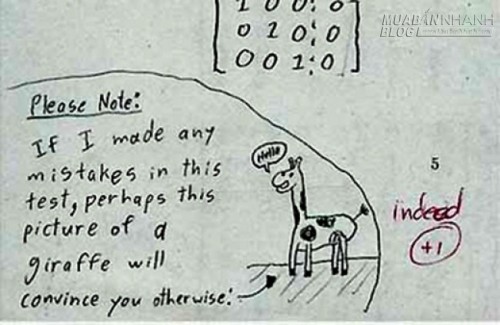 1 0 0 0
0 1 0 0
0 0 1 0
MUABÁNNHANH
BLOG
Please Note:
If I made any
mistakes in this
test, perhaps this
picture of a
giraffe will
convince you otherwise:
Hello
5
indeed
+1